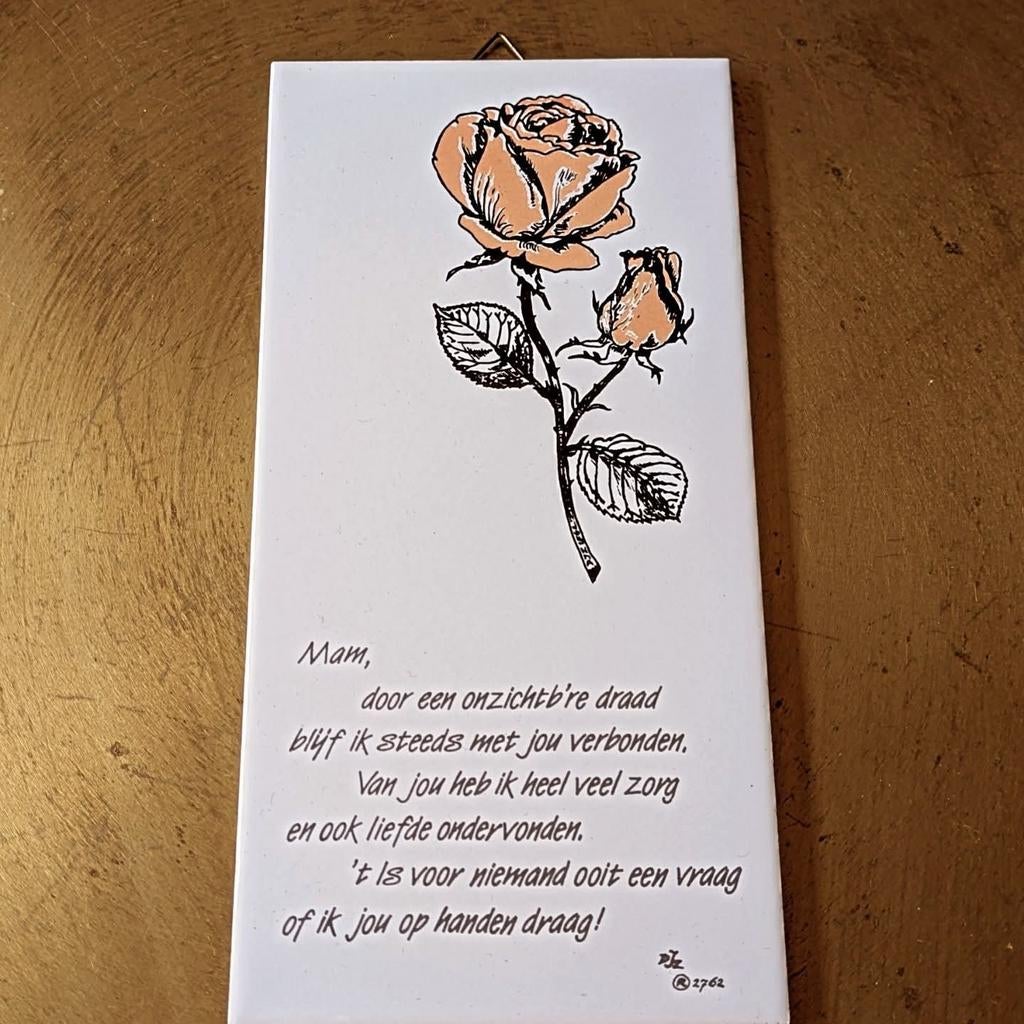 Mam,
door een onzichtb're draad
blijf ik steeds met jou verbonden.
Van jou heb ik heel veel zorg
en ook liefde ondervonden.
't Is voor niemand ooit een vraag
of ik jou op handen draag!
DJZ
® 2762